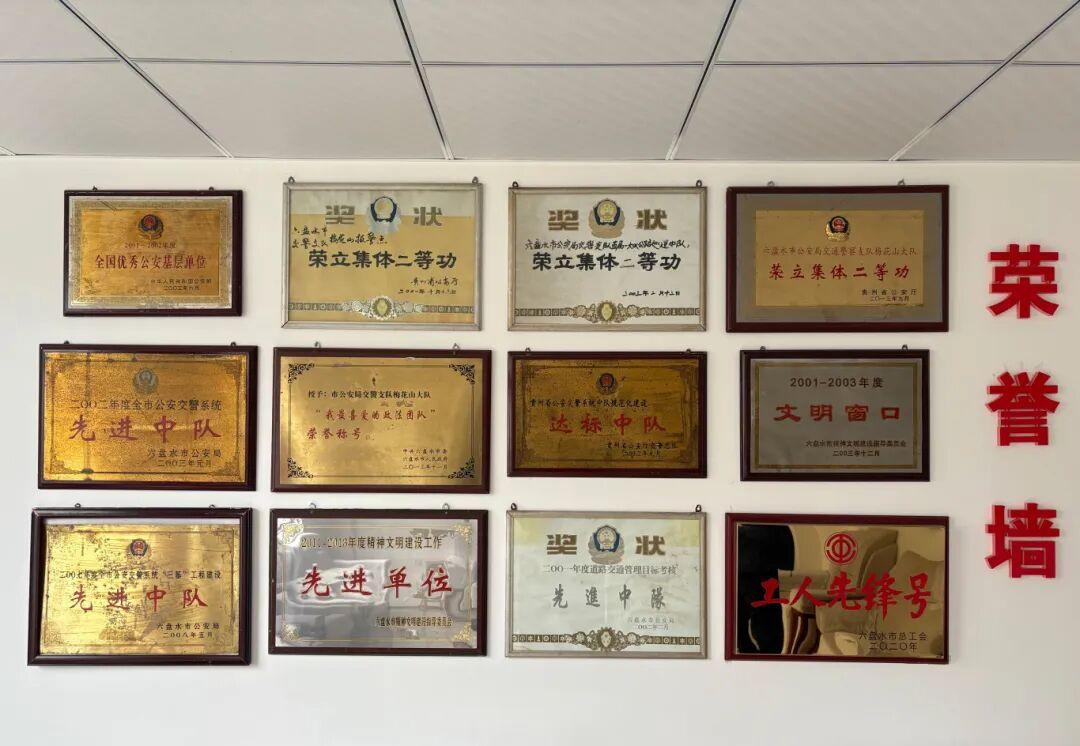 2001-2002年度
全国优秀公安基层单位
中华人民共和国公安部
奖状
六盘水市
交警支队
荣立集体二等功
贵州省公安厅
奖状
荣立集体二等功
二00三年二月十三日
六盘水市公安局交通警察支队梅花山大队
荣立集体二等功
贵州省公安厅
二〇一三年九月
二〇〇二年度全市公安交警系统
先进中队
六盘水市公安局
二〇〇三年元月
授予：市公安局交警支队梅花山大队
“我最喜爱的政法团队”
荣誉称号
中共六盘水市委
六盘水市人民政府
二〇一三年十一月
贵州省公安交警系统中队规范化建设
达标中队
2001-2003年度
文明窗口
六盘水市精神文明建设指导委员会
二〇〇三年十二月
二〇〇七年度全市公安交警系统“三基”工程建设
先进中队
六盘水市公安局
二〇〇八年五月
2011-2013年度精神文明建设工作
先进单位
六盘水市精神文明建设指导委员会
奖状
二〇〇一年度道路交通管理目标考核
先進中隊
六盘水市公安局
二〇〇二年二月
工人先锋号
六盘水市总工会
二〇二〇年
荣誉墙